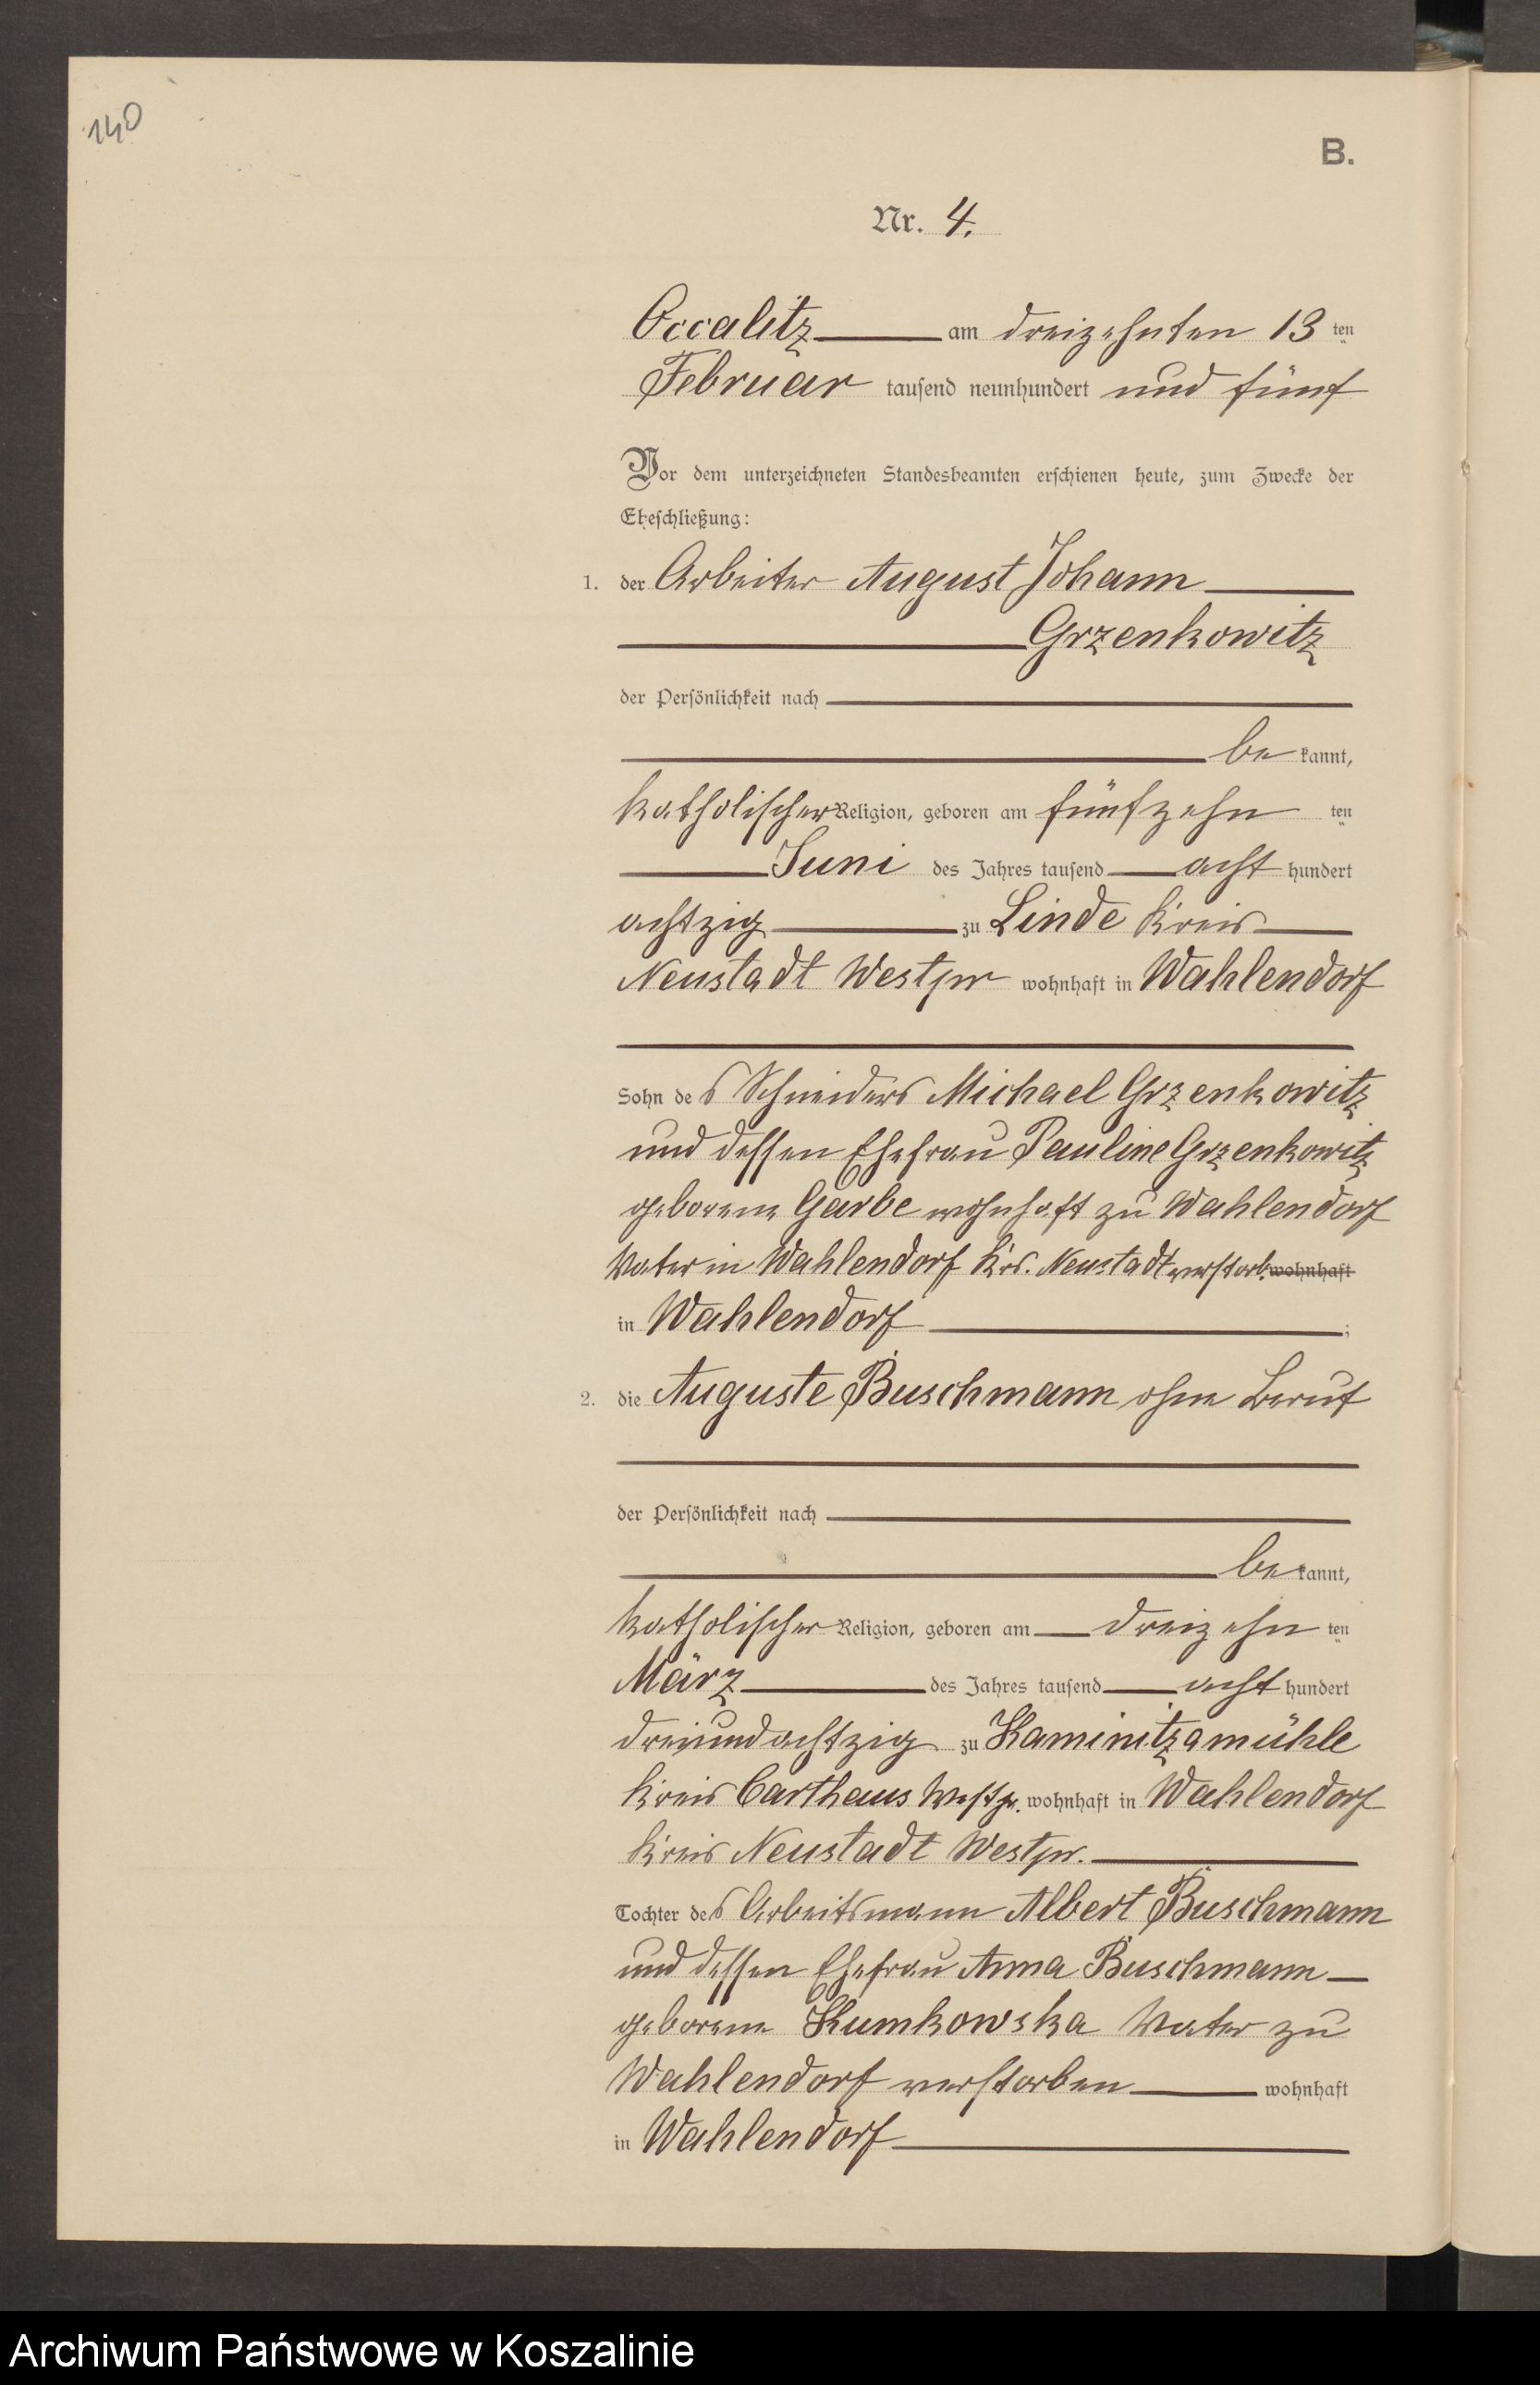 140
B.
Nr. 4.
Occalitz am dreizehnten 13 ten
Februar tausend neunhundert und fünf
Vor dem unterzeichneten Standesbeamten erschienen heute, zum Zwecke der
Eheschließung:
1. der Arbeiter August Johann
Grzenkowitz
der Persönlichkeit nach
be kannt,
katholischer Religion, geboren am fünfzehn ten
Juni des Jahres tausend acht hundert
achtzig zu Linde Kreis
Neustadt Westpr wohnhaft in Wahlendorf
Sohn des Schneiders Michael Grzenkowitz
und dessen Ehefrau Pauline Grzenkowitz
geborene Garbe wohnhaft zu Wahlendorf
Vater in Wahlendorf Krs. Neustadt verstorb. wohnhaft
in Wahlendorf ;
2. die Auguste Buschmann ohne Beruf
der Persönlichkeit nach
be kannt,
katholischer Religion, geboren am dreizehn ten
März des Jahres tausend acht hundert
dreiundachtzig zu Kaminitzamühle
Kreis Carthaus Westpr. wohnhaft in Wahlendorf
Kreis Neustadt Westpr.
Tochter des Arbeitsmann Albert Buschmann
und dessen Ehefrau Anna Buschmann
geborene Kumkowska Vater zu
Wahlendorf verstorben wohnhaft
in Wahlendorf
Archiwum Państwowe w Koszalinie